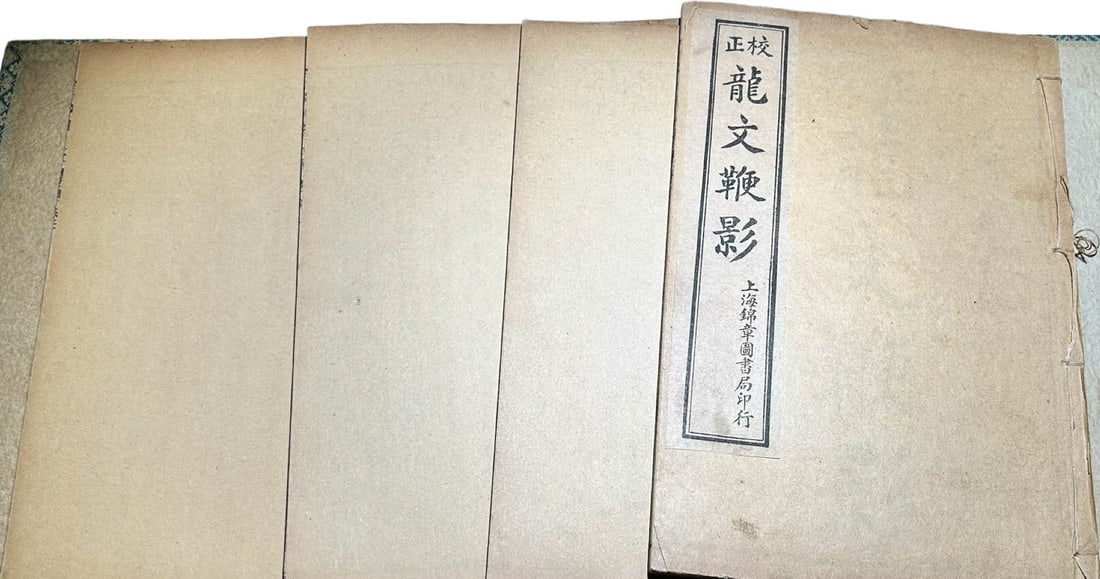 校正
龍文鞭影
上海錦章圖書局印行